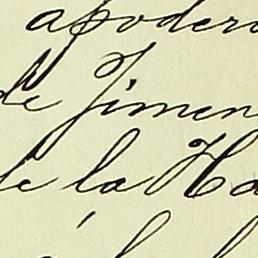 apodero
de Jimen
de la Ha